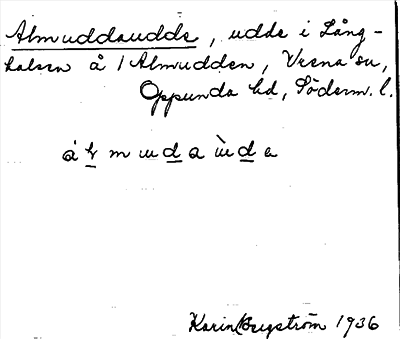 Almuddaudde, udde i Lång-
halsen å / Almudden, Vrena sn,
Oppunda hd, Söderm. l.
Karin Bergström 1936